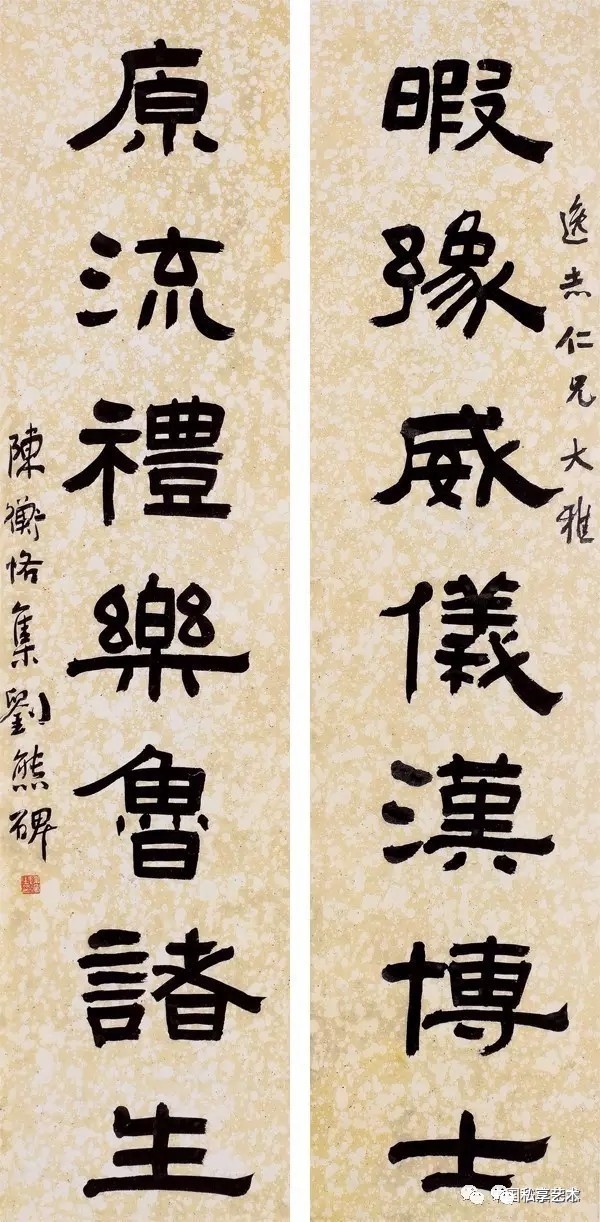 逸志仁兄大雅
暇豫威儀漢博士
原流禮樂魯諸生
陳衡恪集劉熊碑
私享艺术